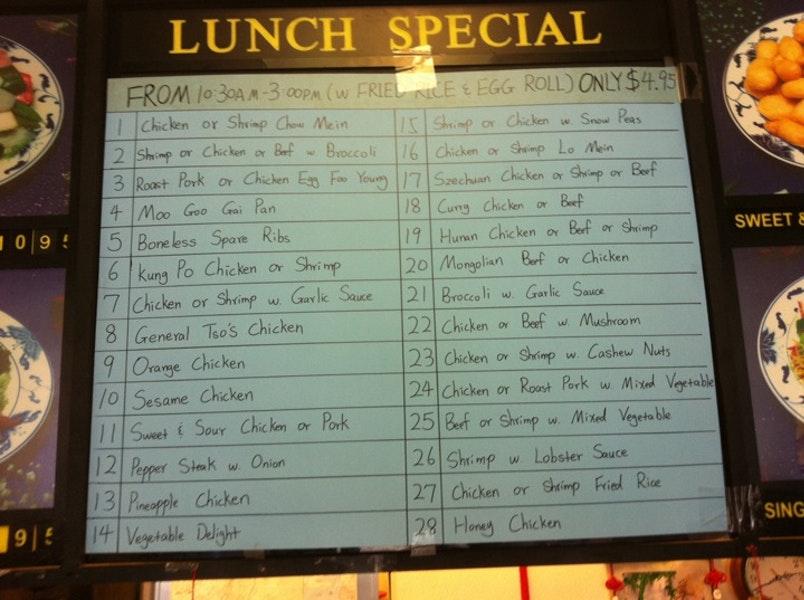 LUNCH SPECIAL
FROM 10:30AM-3:00PM (W FRIED RICE & EGG ROLL) ONLY $4.95
1 Chicken or Shrimp Chow Mein
2 Shrimp or Chicken or Beef w Broccoli
3 Roast Pork or Chicken Egg Foo Young
4 Moo Goo Gai Pan
5 Boneless Spare Ribs
6 Kung Po Chicken or Shrimp
7 Chicken or Shrimp w. Garlic Sauce
8 General Tso's Chicken
9 Orange Chicken
10 Sesame Chicken
11 Sweet & Sour Chicken or Pork
12 Pepper Steak w. Onion
13 Pineapple Chicken
14 Vegetable Delight
15 Shrimp or Chicken w. Snow Peas
16 Chicken or Shrimp Lo Mein
17 Szechuan Chicken or Shrimp or Beef
18 Curry Chicken or Beef
19 Hunan Chicken or Beef or Shrimp
20 Mongolian Beef or Chicken
21 Broccoli w. Garlic Sauce
22 Chicken or Beef w. Mushroom
23 Chicken or Shrimp w. Cashew Nuts
24 Chicken or Roast Pork w. Mixed Vegetable
25 Beef or Shrimp w. Mixed Vegetable
26 Shrimp w. Lobster Sauce
27 Chicken or Shrimp Fried Rice
28 Honey Chicken
1 0 9 5
9 5
SWEET &
SING